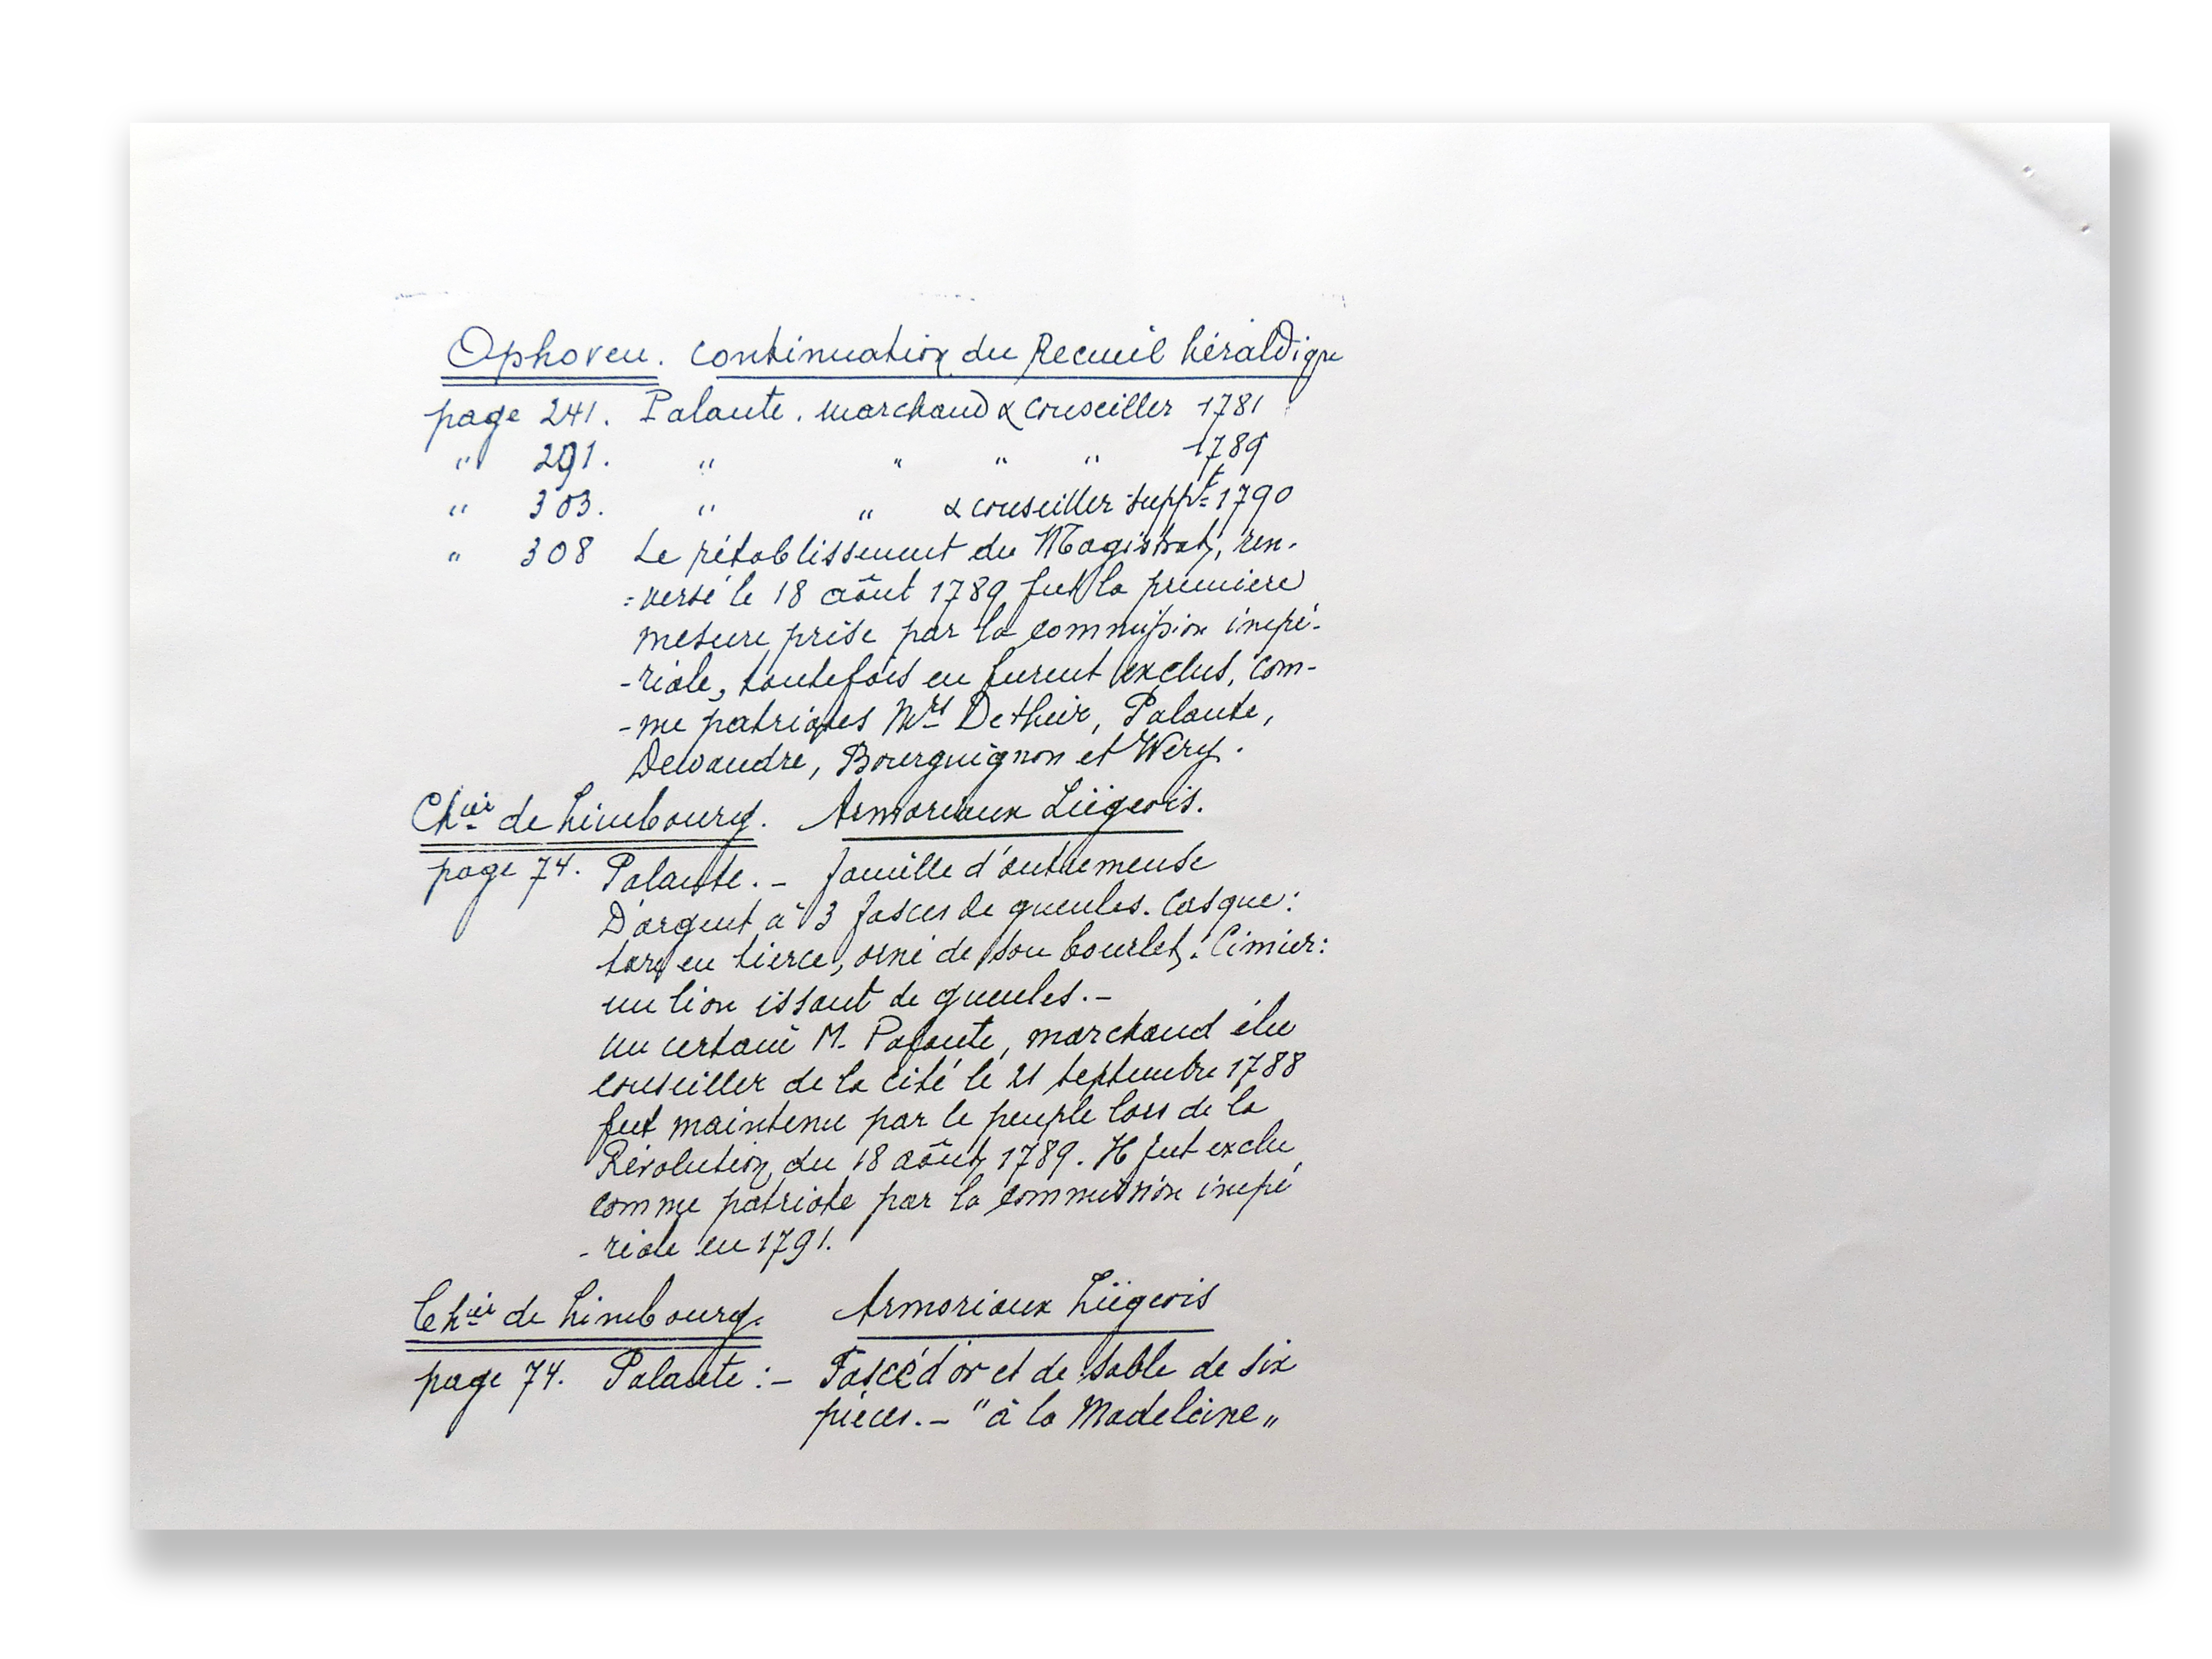 Ophoven. Continuation du Recueil héraldique
page 241. Palante. marchand & conseiller 1781
" 291. " " " " 1789
" 303. " " & conseiller suppt 1790
" 308 Le rétablissement du Magistrat, ren-
=versé le 18 août 1789 fut la première
mesure prise par la commission impé-
-riale, toutefois en furent exclus, com-
-me patriotes Mrs Detheir, Palante,
Dewandre, Bourguignon et Wéry.
Chier de Limbourg. Armoriaux Liégeois.
page 74. Palante. - famille d'outremeuse
D'argent à 3 fasces de gueules. Casque:
taré en tierce, orné de son bourlet. Cimier:
un lion issant de gueules.-
un certain M. Palante, marchand élu
conseiller de la cité le 21 septembre 1788
fut maintenu par le peuple lors de la
Révolution du 18 août 1789. Il fut exclu
comme patriote par la commission impé
-riale en 1791.
Chier de Limbourg. Armoriaux Liégeois
page 74. Palante :- Fascé d'or et de sable de six
pièces. - "à la Madeleine„